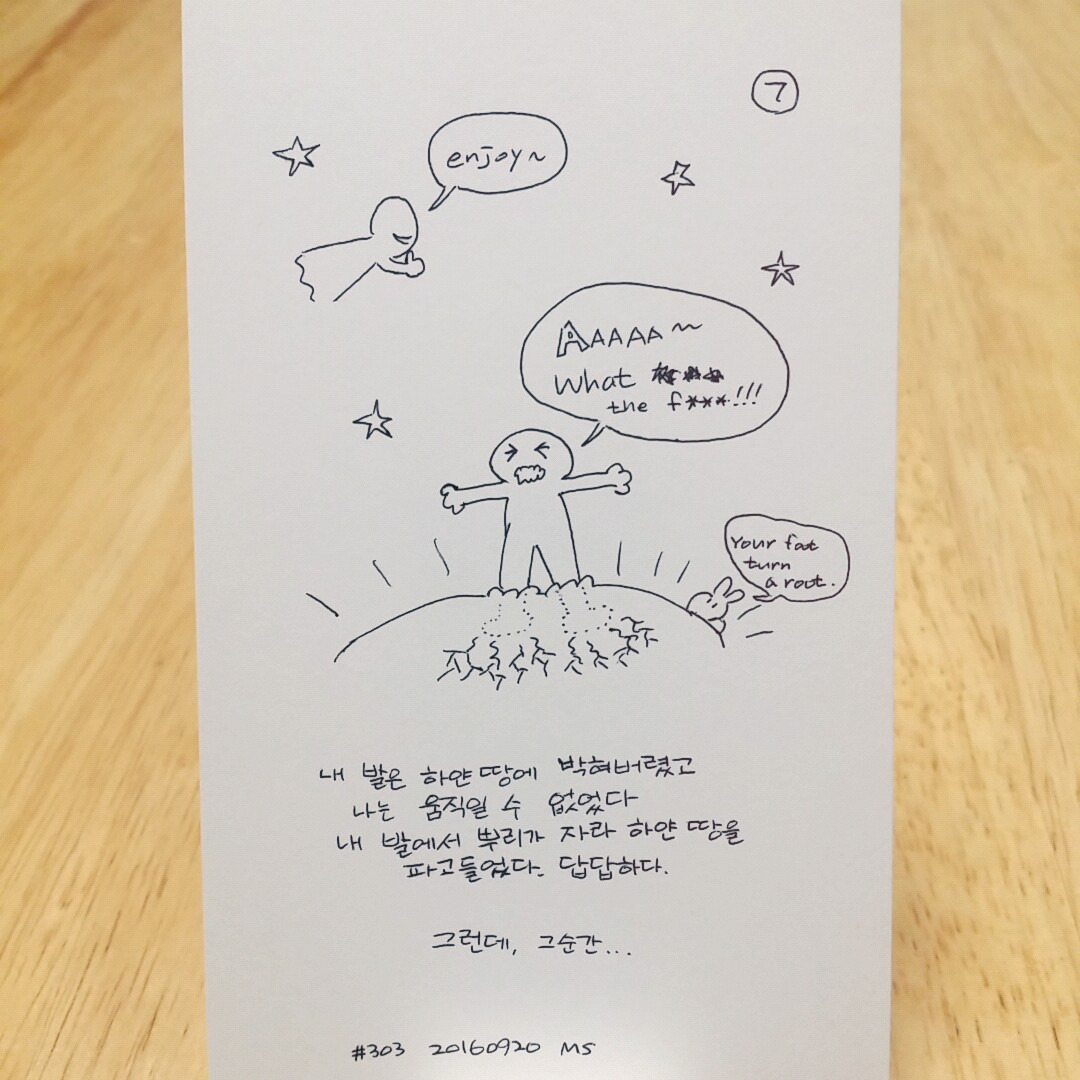 7
enjoy~
AAAAA~
What
the f***!!!
Your foot
turn
a root.
내 발은 하얀 땅에 박혀버렸고
나는 움직일 수 없었다
내 발에서 뿌리가 자라 하얀 땅을
파고들었다. 답답하다.
그런데, 그순간...
#303 20160920 MS